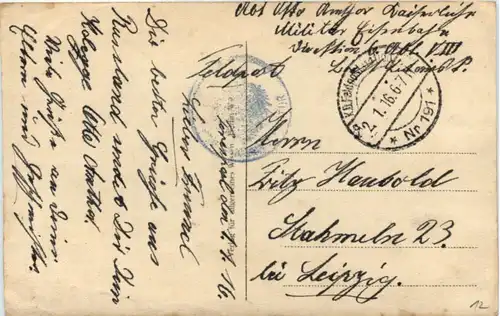 Abs Otto Amthor Kaiserliche
Militär Eisenbahn
Direktion 6 Abt. VIII
Feldpost
K.D. Feldpost
2.1.16.6-7
* Nr. 191 *
Herrn
Fritz Haubold
Stahmeln 23.
bei Leipzig.
d. 1.1.16.
Lieber Freund
Die besten Grüße aus
Russland sendet Dir Dein
Kollege Otto Amthor
Viele Grüße an Deine
Eltern und Geschwister.
12